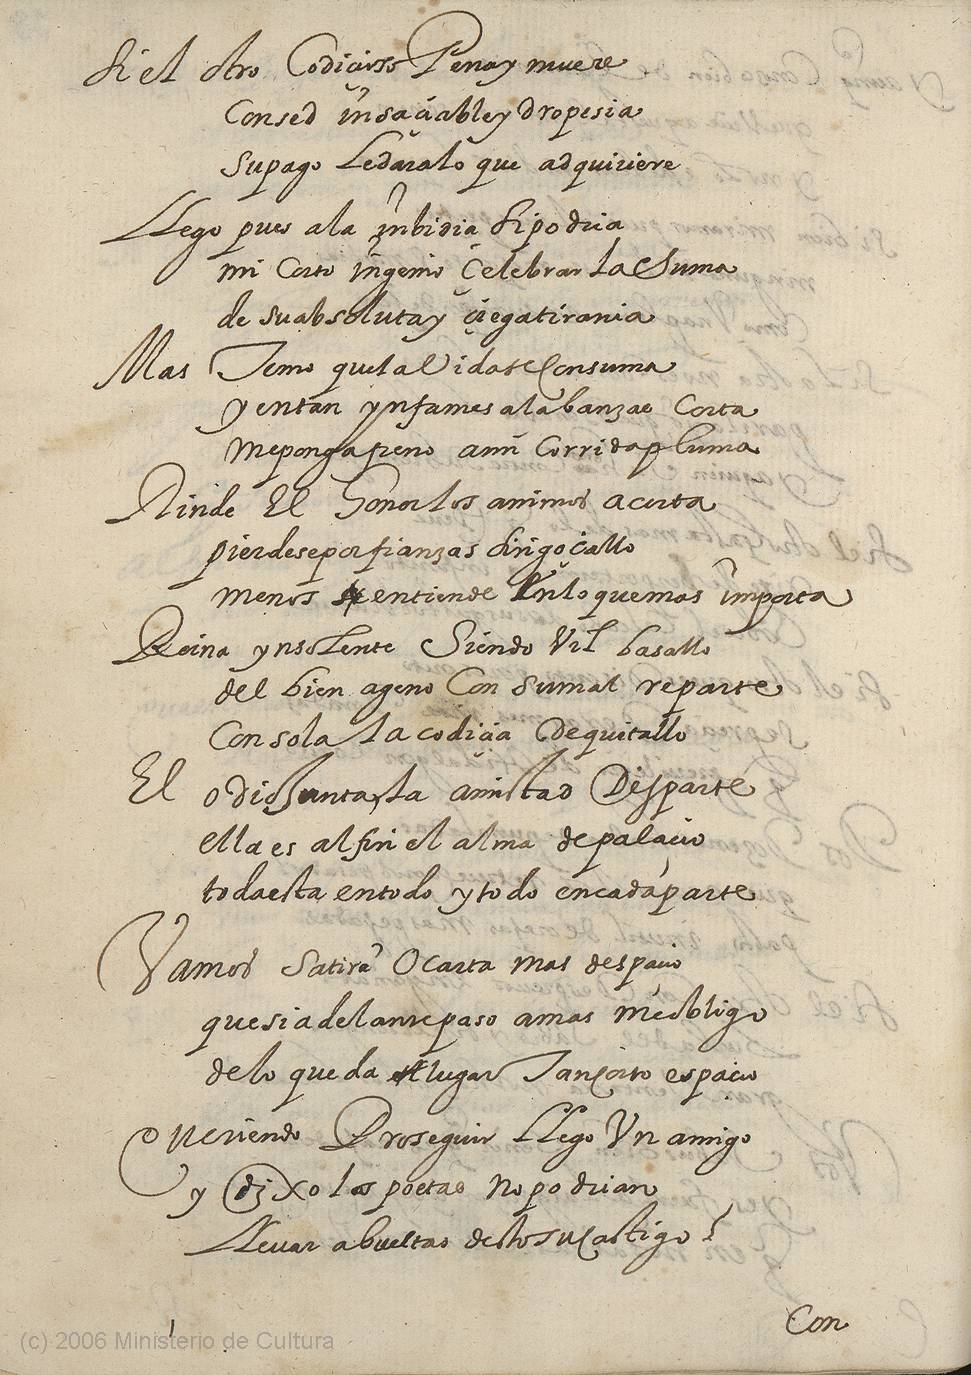 si el otro Codicioso Pena y muere
Con sed insaciable y dropesia
su pago Le dara lo que adquiriere
LLego pues a la inbidia si podria
mi Corto ingenio Celebrar La Suma
de su absoluta y ciega tirania
Mas Temo que la Vida se Consuma
y en tan ynfames alabanzas Corta
me ponga freno a mi Corrida pluma
Rinde El Honor los animos acorta
pierdese por fianzas sin gocallo
menos se entiende En lo que mas importa
Reina ynsolente Siendo Vil basallo
del bien ageno Con su mal reparte
Consola La codicia De quitallo
El odio Junta La amistad Desparte
ella es al fin el alma de palacio
toda esta en todo y todo en cada parte
Vamos Satira O carta mas despacio
que si adelante paso a mas me obligo
de lo que da el lugar Tan Corto espacio
Queriendo Proseguir LLego Un amigo
y dixo los poetas no podrian
LLevar a bueltas desto su Castigo?
Con
(c) 2006 Ministerio de Cultura